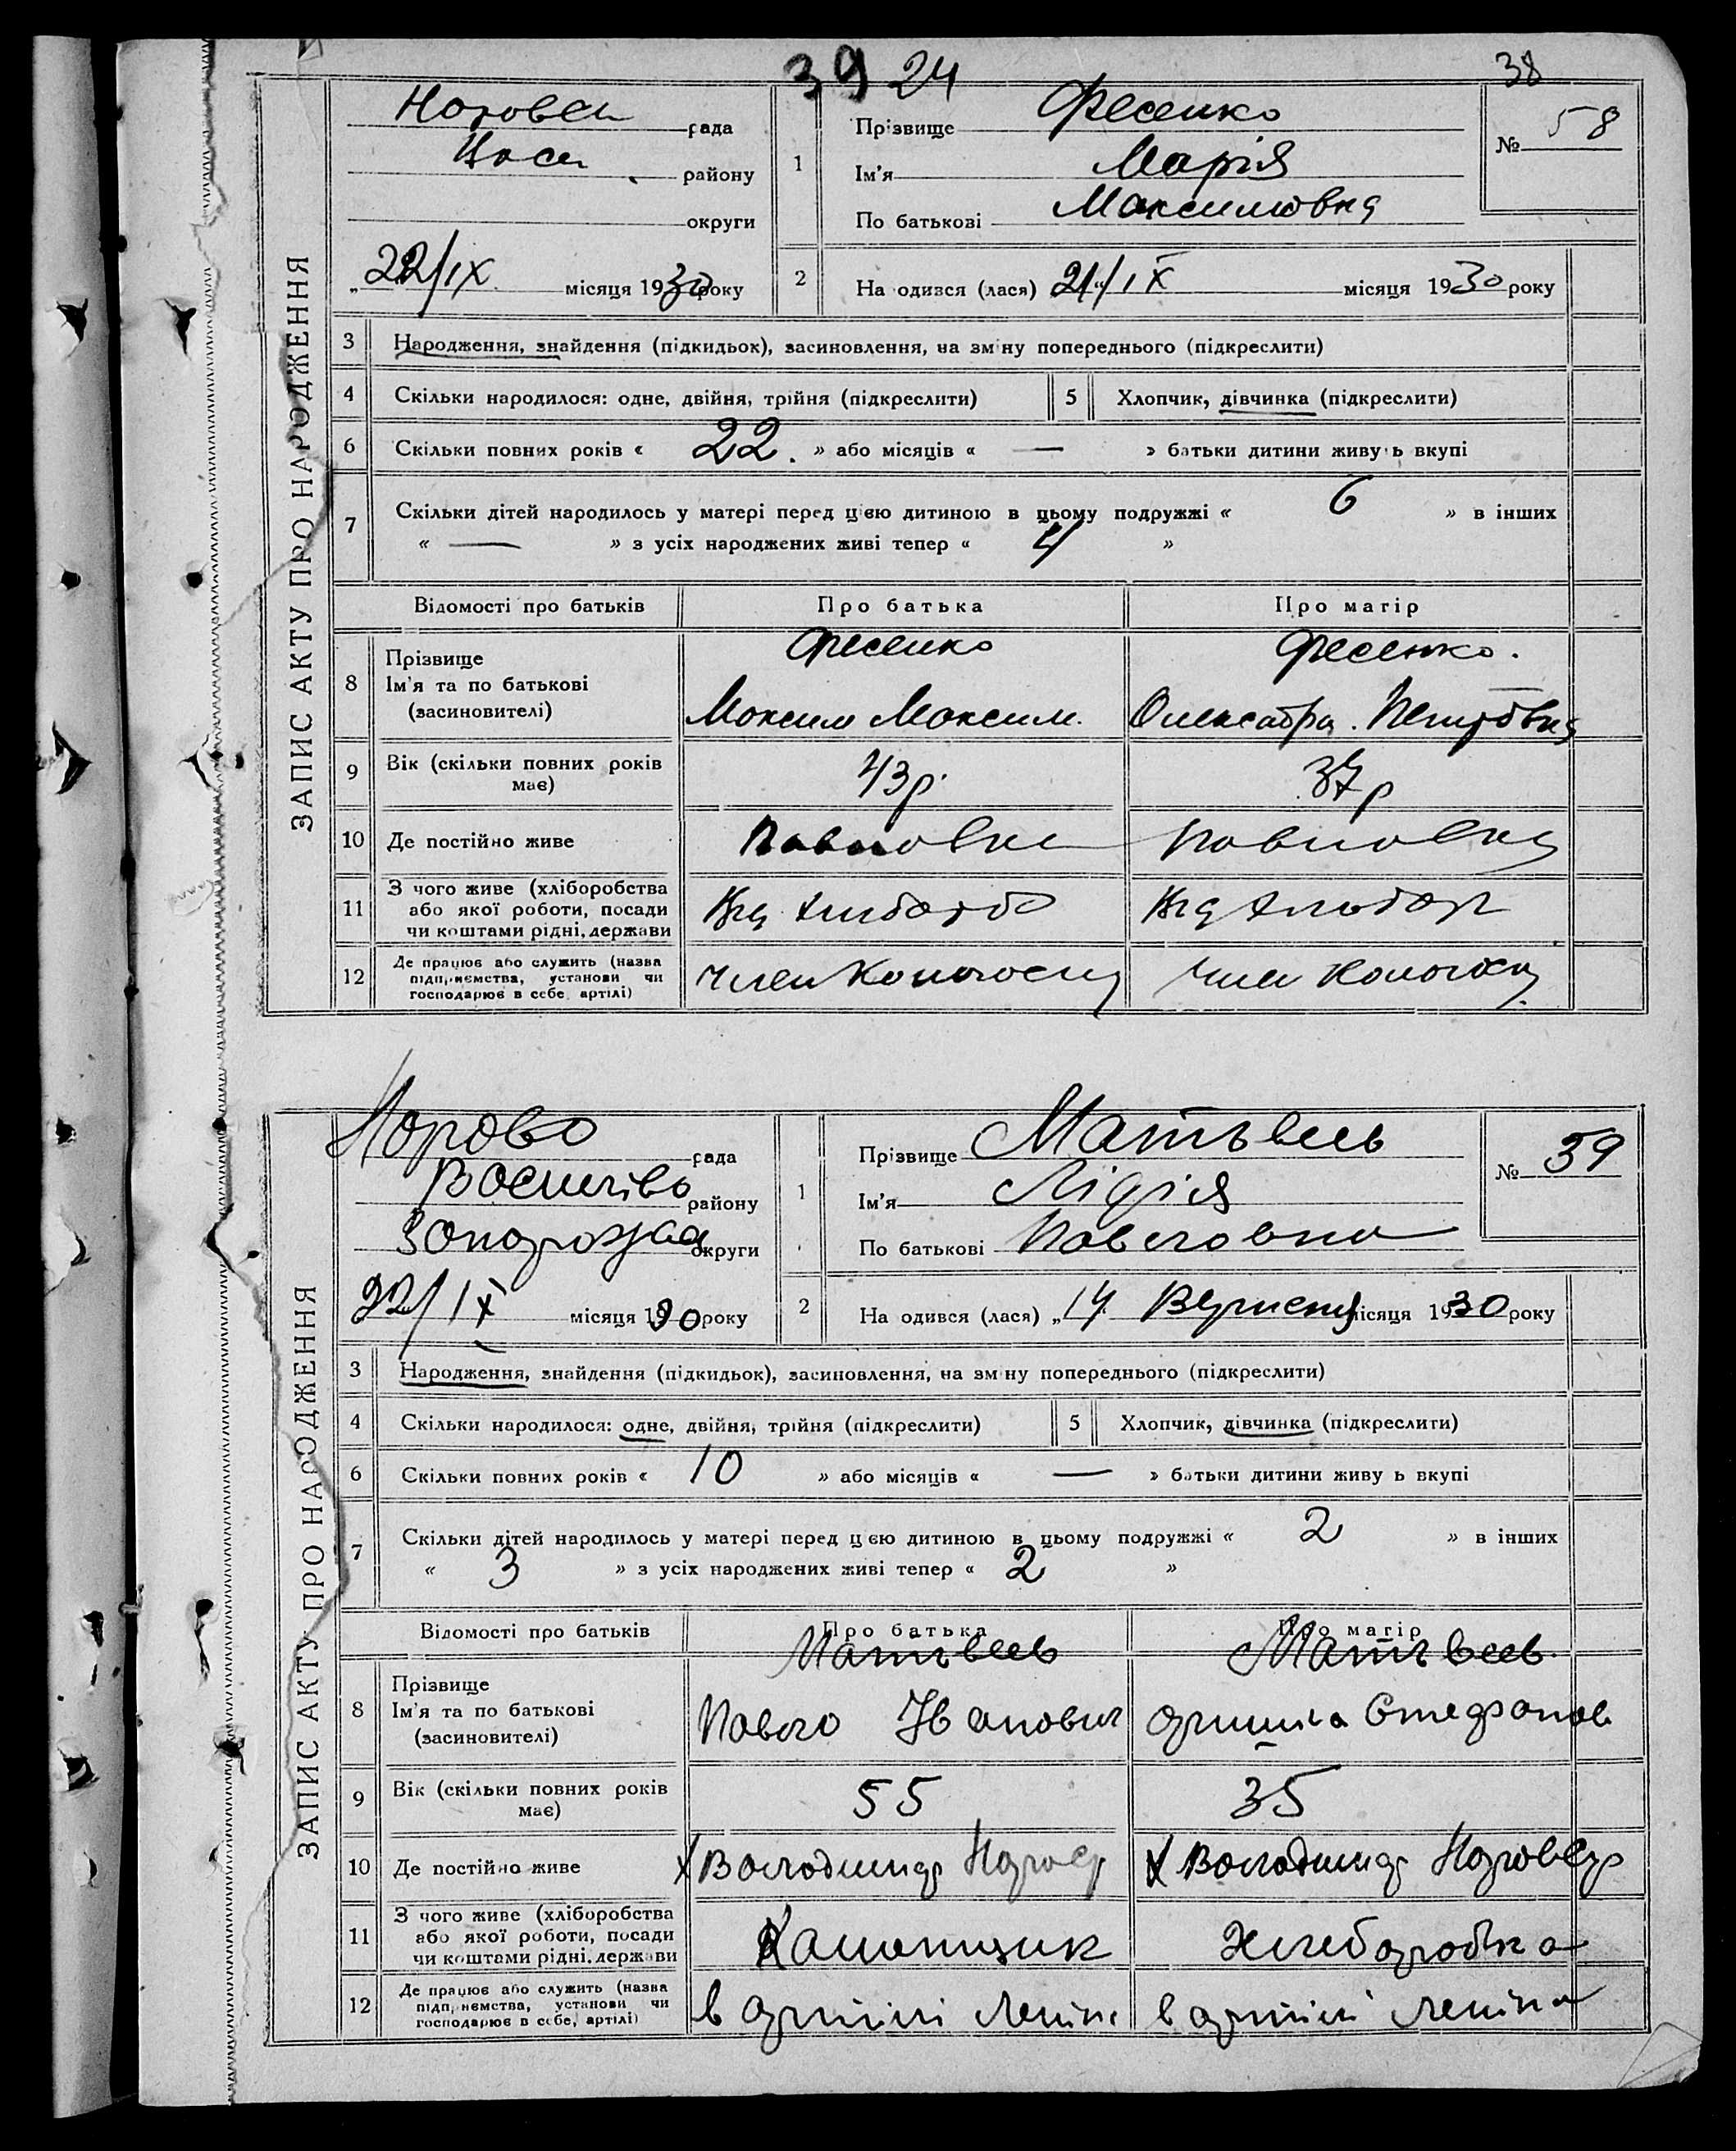 39 24
38
рада
району
округи
„22/IX місяця 1930 року
1
Прізвище Фесенко
Ім'я Марія
По батькові Максимовна
№ 58
2
На одився (лася) „21/IX місяця 1930 року
ЗАПИС АКТУ ПРО НАРОДЖЕННЯ
3 Народження, знайдення (підкидьок), засиновлення, на зміну попереднього (підкреслити)
4 Скільки народилося: одне, двійня, трійня (підкреслити)
5 Хлопчик, дівчинка (підкреслити)
6 Скільки повних років « 22. » або місяців « — » батьки дитини живуть вкупі
7 Скільки дітей народилось у матері перед цією дитиною в цьому подружжі « 6 » в інших
« — » з усіх народжених живі тепер « 4 »
Відомості про батьків Про батька Про матір
8 Прізвище Фесенко Фесенко.
Ім'я та по батькові Максим Максим. Олександра Петровна
(засиновителі)
9 Вік (скільки повних років має) 43р. 37р
10 Де постійно живе Павловка Павловка
11 З чого живе (хліборобства
або якої роботи, посади
чи коштами рідні, держави
12 Де працює або служить (назва
підприємства, установи чи
господарює в себе, артілі)
Член Колгоспу Член Колгоспу
рада
району
округи
22/IX місяця 1930 року
1
Прізвище Матьвеев
Ім'я Лідія
По батькові Павловна
№ 59
2
На одився (лася) „14 Вересня місяця 1930 року
ЗАПИС АКТУ ПРО НАРОДЖЕННЯ
3 Народження, знайдення (підкидьок), засиновлення, на зміну попереднього (підкреслити)
4 Скільки народилося: одне, двійня, трійня (підкреслити)
5 Хлопчик, дівчинка (підкреслити)
6 Скільки повних років « 10 » або місяців « — » батьки дитини живуть вкупі
7 Скільки дітей народилось у матері перед цією дитиною в цьому подружжі « 2 » в інших
« 3 » з усіх народжених живі тепер « 2 »
Відомості про батьків Про батька Про матір
8 Прізвище Матьвеев Матьвеев.
Ім'я та по батькові Павло Іванович Стефанов
(засиновителі)
9 Вік (скільки повних років має) 55 35
10 Де постійно живе
11 З чого живе (хліборобства
або якої роботи, посади
чи коштами рідні, держави
Хлеборобка
12 Де працює або служить (назва
підприємства, установи чи
господарює в себе, артілі)
в артілі Леніна в артілі Леніна